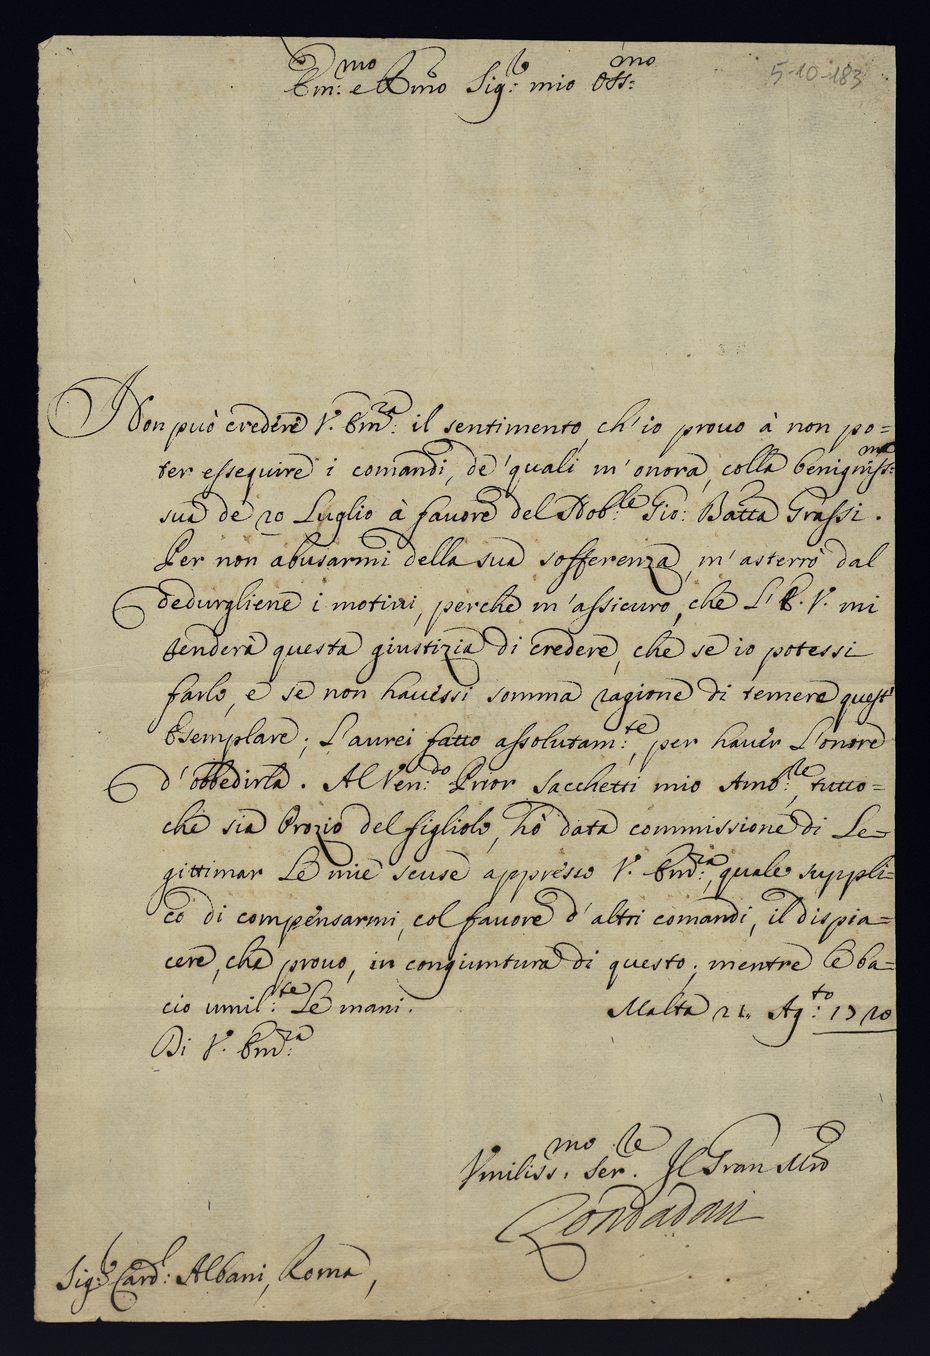 Em:mo e Rmo Sig:r mio Oss:mo
5-10-183
Non può credere V. Em:za il sentimento, ch'io provo à non po=
ter esseguire i comandi, de' quali m'onora, colla benigniss:ma
sua de 20 Luglio à favore del Nob:le Gio: Batta Grassi.
Per non abusarmi della sua sofferenza, m'asterrò dal
dedurgliene i motivi, perche m'assicuro, che L'E.V. mi
renderà questa giustizia di credere, che se io potessi
farlo, e se non havessi somma ragione di temere quest'
Esemplare; L'aurei fatto assolutam:te, per haver L'onore
d'obbedirla. Al Ven:do Prior Sacchetti mio Amb:re, tutto=
che sia Prozio del figliolo, hò data commissione di Le=
gittimar Le mie scuse appresso V. Em:za, quale suppli=
co di compensarmi, col favore d'altri comandi, il dispia=
cere, che provo, in congiuntura di questo; mentre le ba=
cio umil:te Le mani. Malta 21. Ag:to 1720
Di V. Em:za
Vmiliss:mo Ser:re Il Gran Mro
Zondadari
Sig:r Card:l Albani, Roma,